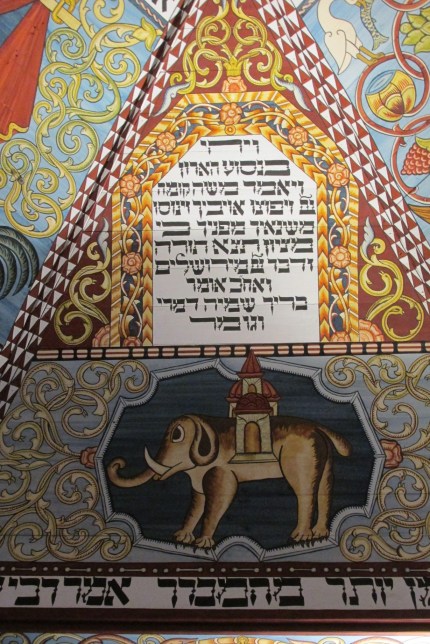 ויהי
בנסוע הארון
ויאמר משה קומה
ויפוצו אויביך וינוסו
משנאיך מפניך כי
מציון תצא תורה
ודבר מירושלים
ואחכ אומר
בריך שמיה דמרי
וגומר
יותר אמר רבי